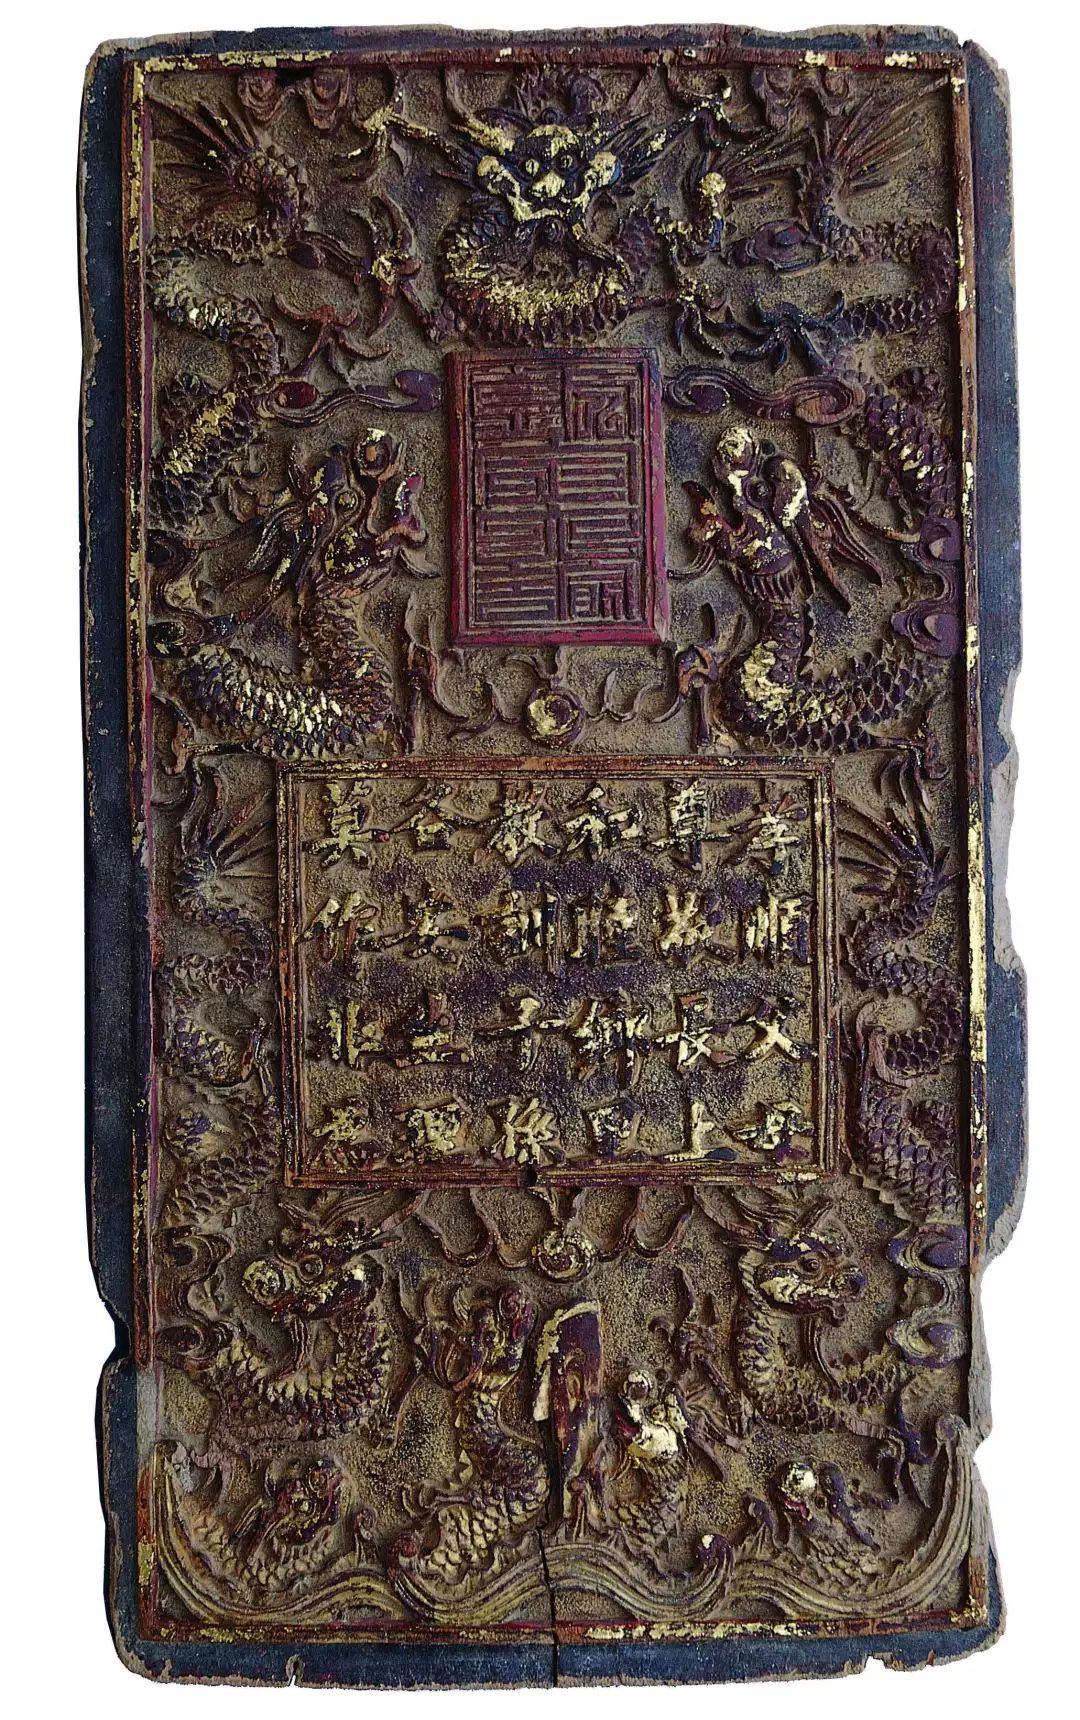 孝順父母
尊敬長上
和睦鄉里
教訓子孫
各安生理
莫作非為